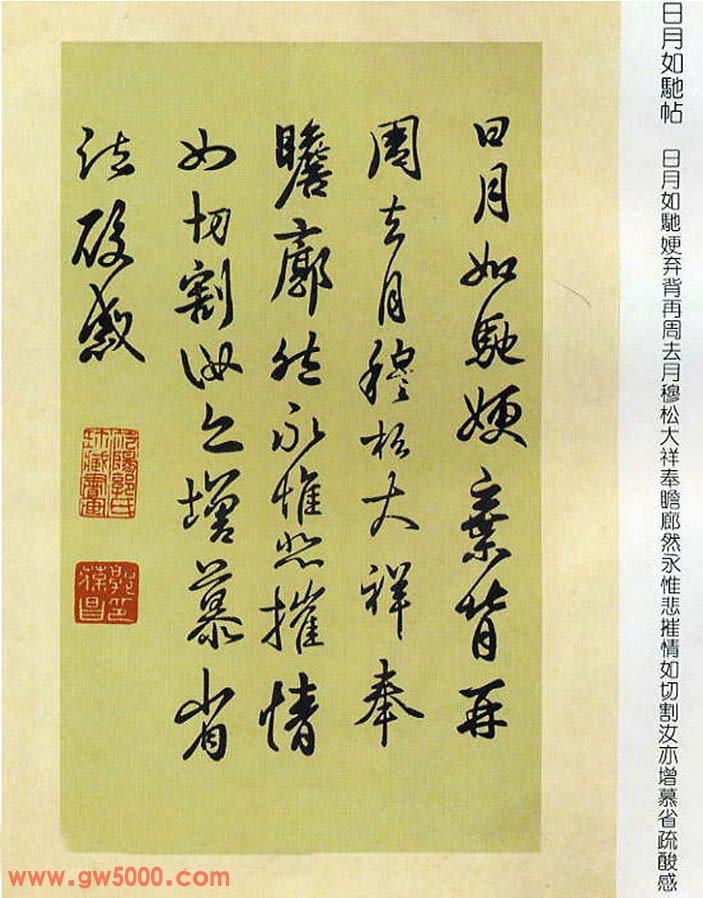 日月如馳帖 日月如馳㛐弃背再周去月穆松大祥奉瞻廊然永惟悲摧情如切割汝亦增慕省疏酸感
日月如馳㛐棄背再
周去月穆松大祥奉
瞻廓然永惟悲摧情
如切割汝亦增慕省
疏酸感
www.gw5000.com